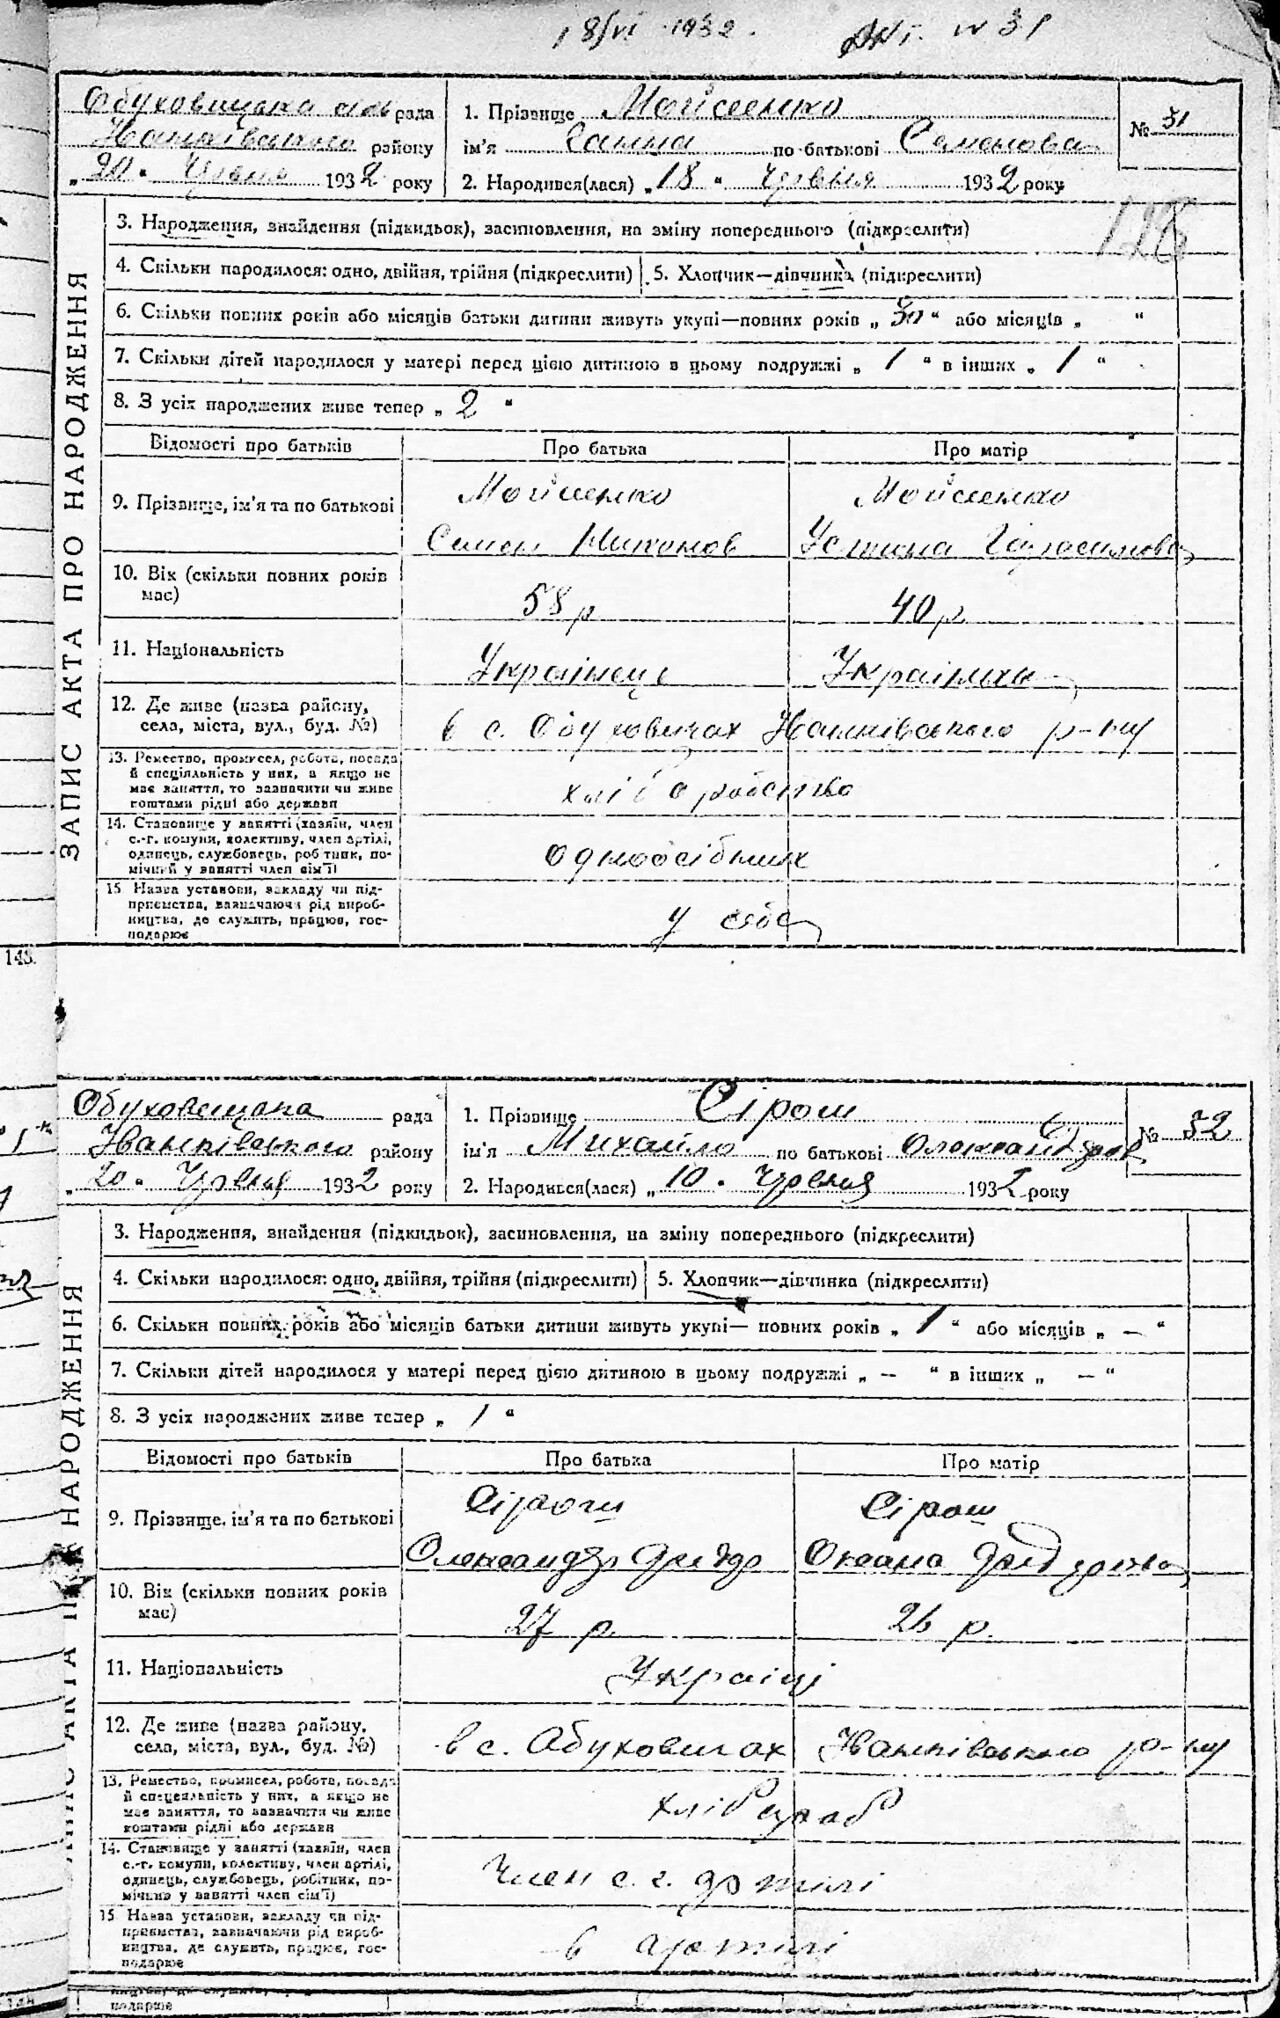 18/VI 1932. Акт. N 31
Обуховицька сільрада
Іванківського району
„20" Червня 1932 року
1. Прізвище Мойсеенко
ім'я Ганна по батькові Семенова
2. Народився(лася) „18" Червня 1932 року
№ 31
126
ЗАПИС АКТА ПРО НАРОДЖЕННЯ
3. Народження, знайдення (підкидьок), засиновлення, на зміну попереднього (підкреслити)
4. Скільки народилося: одно, двійня, трійня (підкреслити) 5. Хлопчик—дівчинка (підкреслити)
6. Скільки повних років або місяців батьки дитини живуть укупі—повних років „ " або місяців „ "
7. Скільки дітей народилося у матері перед цією дитиною в цьому подружжі „ 1 " в інших „ 1 "
8. З усіх народжених живе тепер „ 2 "
Відомості про батьків Про батька Про матір
9. Прізвище, ім'я та по батькові
Мойсеенко Мойсеенко
Семен Никонов Устина Гарасимова
10. Вік (скільки повних років має)
58 р 40 р
11. Національність
Українець Українка
12. Де живе (назва району, села, міста, вул., буд. №)
в с. Обуховичах Іванківського р-ну
13. Ремество, промисел, робота, посада
й спеціяльність у них, а якщо не
має заняття, то зазначити чи живе
коштами рідні або держави
хліборобство
14. Становище у занятті (хазяїн, член
с.-г. комуни, колективу, член артілі,
одинець, службовець, робітник, по-
мічний у занятті член сім'ї)
одноосібник
15 Назва установи, закладу чи під-
приємства, зазначаючи рід вироб-
ництва, де служить, працює, гос-
подарює
у себе
148.
Обуховицька рада
Іванківського району
„20" Червня 1932 року
1. Прізвище Сірош
ім'я Михайло по батькові Олександров
2. Народився(лася) „10" Червня 1932 року
№ 32
НАРОДЖЕННЯ
3. Народження, знайдення (підкидьок), засиновлення, на зміну попереднього (підкреслити)
4. Скільки народилося: одно, двійня, трійня (підкреслити) 5. Хлопчик—дівчинка (підкреслити)
6. Скільки повних років або місяців батьки дитини живуть укупі— повних років „ 1 " або місяців „ — "
7. Скільки дітей народилося у матері перед цією дитиною в цьому подружжі „ — " в інших „ — "
8. З усіх народжених живе тепер „ 1 "
Відомості про батьків Про батька Про матір
9. Прізвище, ім'я та по батькові
Сірош Сірош
Олександр Оксана
10. Вік (скільки повних років має)
27 р. 26 р.
11. Національність
Україці
12. Де живе (назва району, села, міста, вул., буд. №)
в с. Обуховичах Іванківського р-ну
13. Ремество, промисел, робота, посада
й спеціяльність у них, а якщо не
має заняття, то зазначити чи живе
коштами рідні або держави
14. Становище у занятті (хазяїн, член
с.-г. комуни, колективу, член артілі,
одинець, службовець, робітник, по-
мічний у занятті член сім'ї)
Член с. г. артілі
15 Назва установи, закладу чи під-
приємства, зазначаючи рід вироб-
ництва, де служить, працює, гос-
подарює
в артілі
подарює